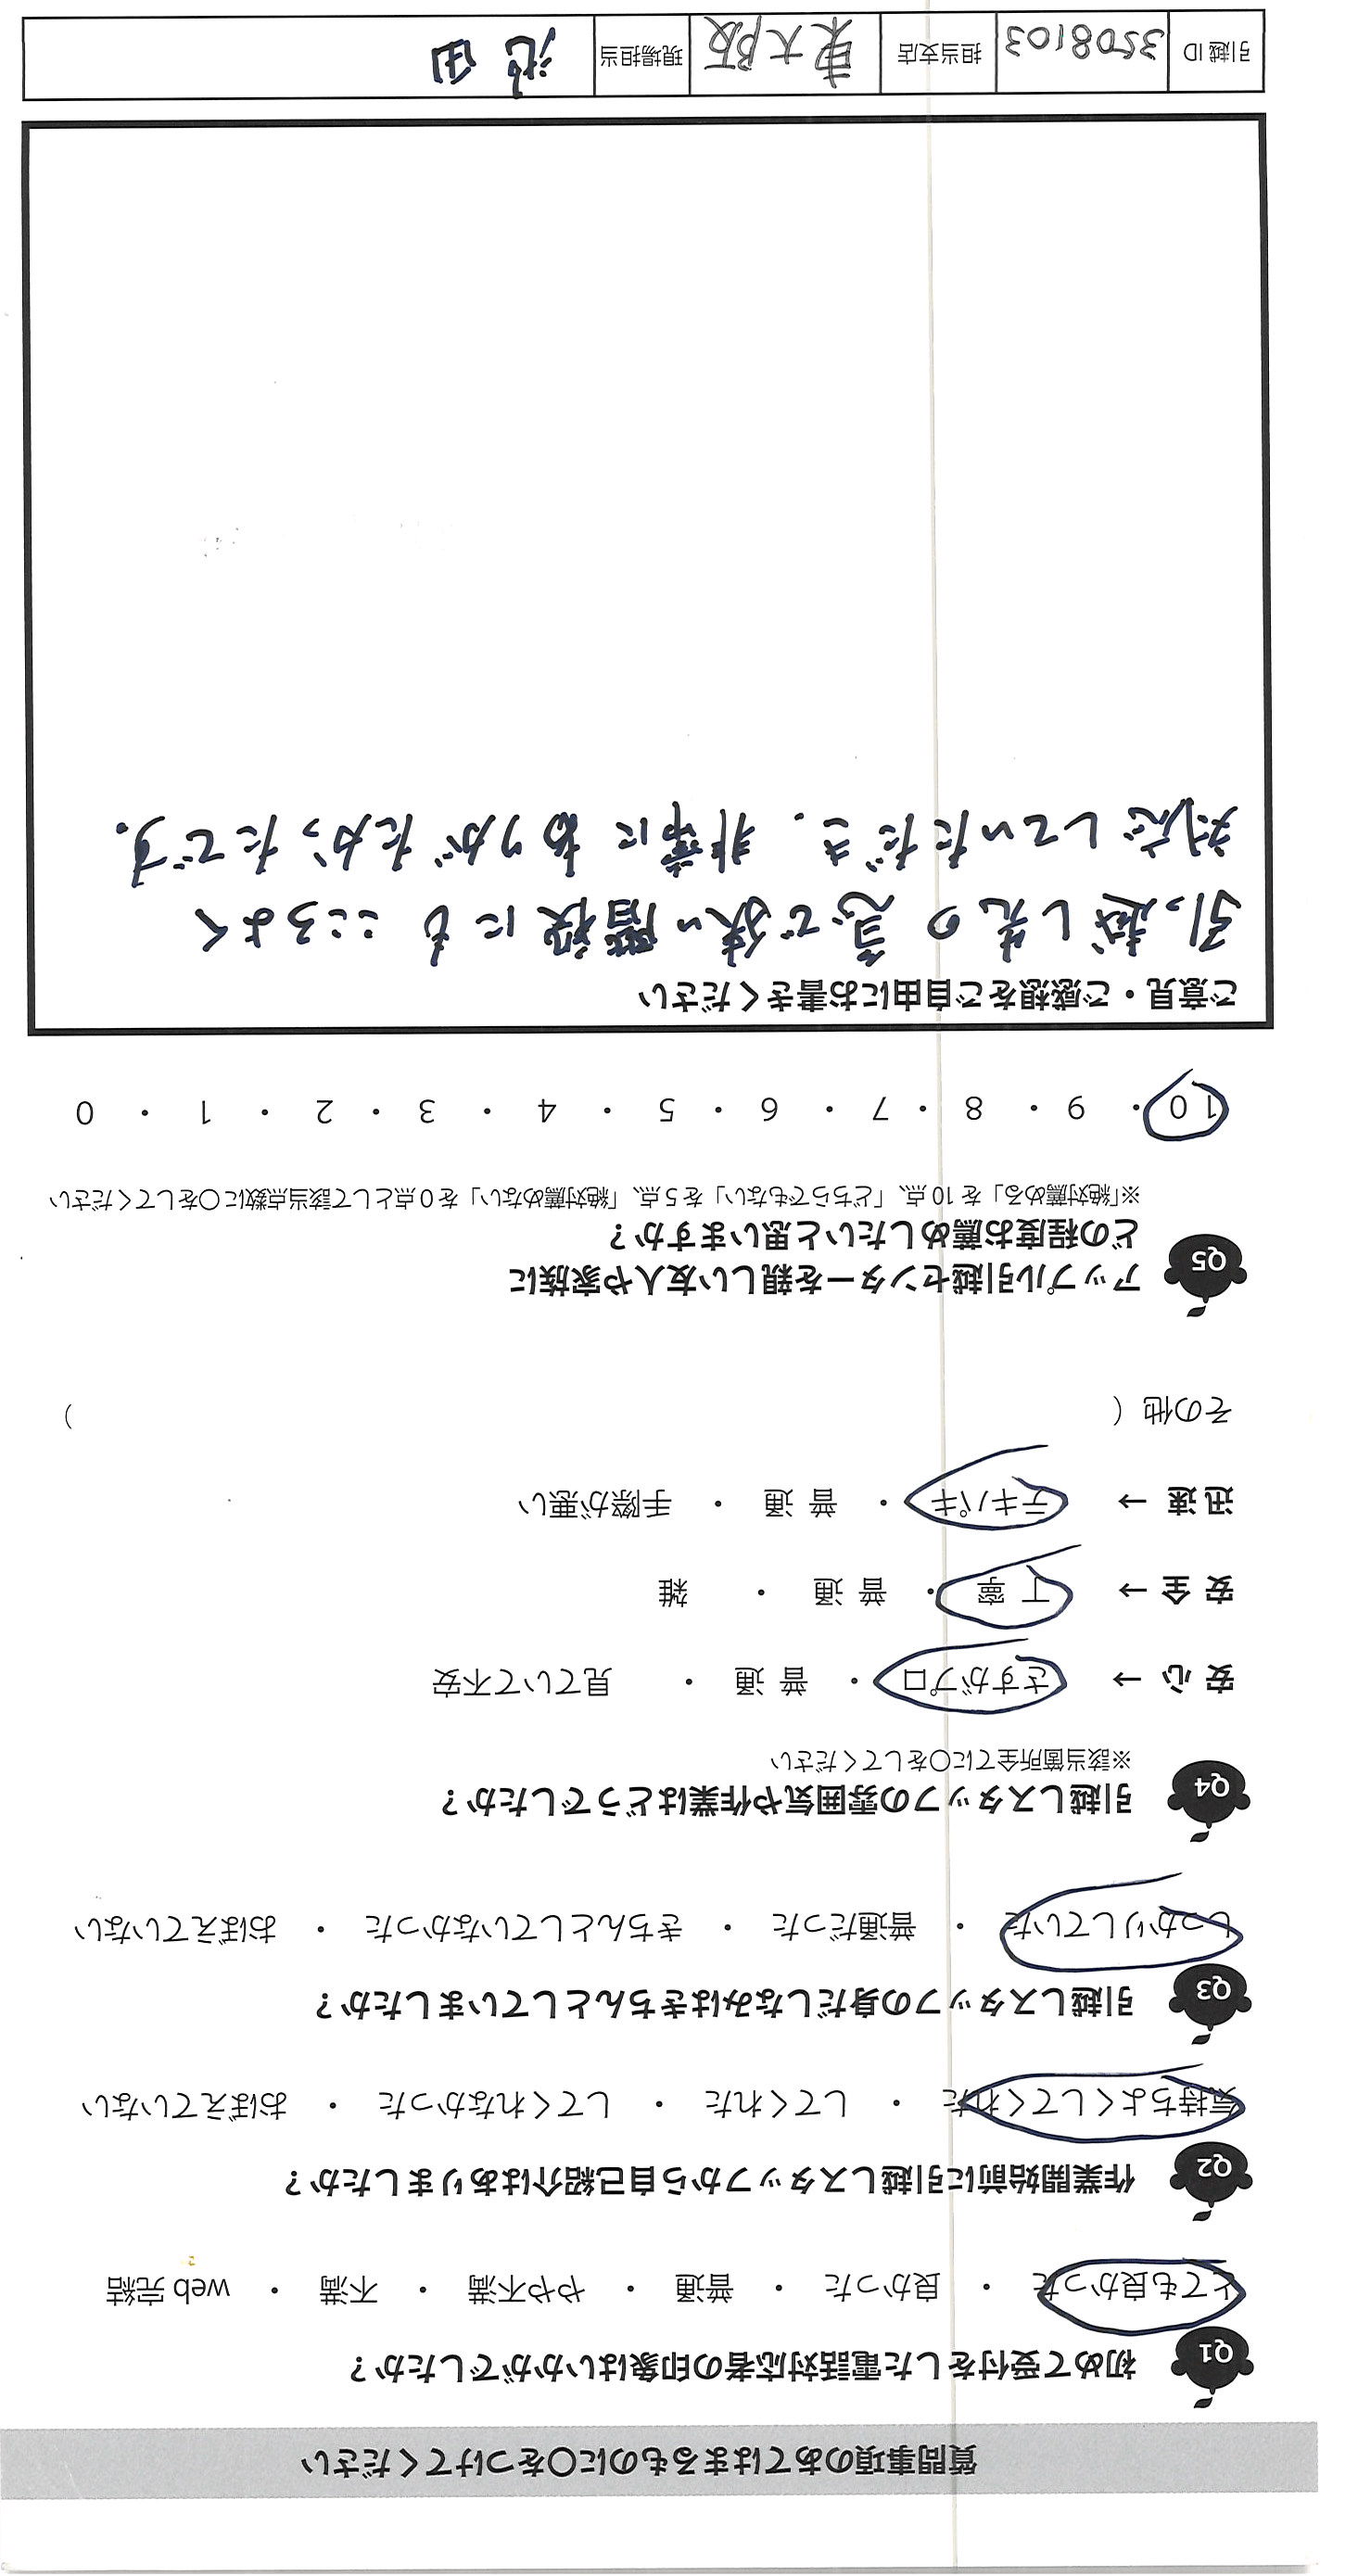 質問事項のあてはまるものに〇をつけてください
Q1 初めて受付をした電話対応者の印象はいかがでしたか？
とても良かった ・ 良かった ・ 普通 ・ やや不満 ・ 不満 ・ web 完結
Q2 作業開始前に引越しスタッフから自己紹介はありましたか？
気持ちよくしてくれた ・ してくれた ・ してくれなかった ・ おぼえていない
Q3 引越しスタッフの身だしなみはきちんとしていましたか？
しっかりしていた ・ 普通だった ・ きちんとしていなかった ・ おぼえていない
Q4 引越しスタッフの雰囲気や作業はどうでしたか？
※該当箇所全てに〇をしてください
安心 → さすがプロ ・ 普通 ・ 見ていて不安
安全 → 丁寧 ・ 普通 ・ 雑
迅速 → テキパキ ・ 普通 ・ 手際が悪い
その他（ ）
Q5 アップル引越センターを親しい友人や家族に
どの程度お薦めしたいと思いますか？
※「絶対薦める」を10点、「どちらでもない」を5点、「絶対薦めない」を0点として該当点数に〇をしてください
10 ・ 9 ・ 8 ・ 7 ・ 6 ・ 5 ・ 4 ・ 3 ・ 2 ・ 1 ・ 0
ご意見・ご感想をご自由にお書きください
引っ越し先の急で狭い階段にもこころよく
対応していただき、非常にありがたかったです。
引越ID 3508103 担当支店 東大阪 現場担当 池田